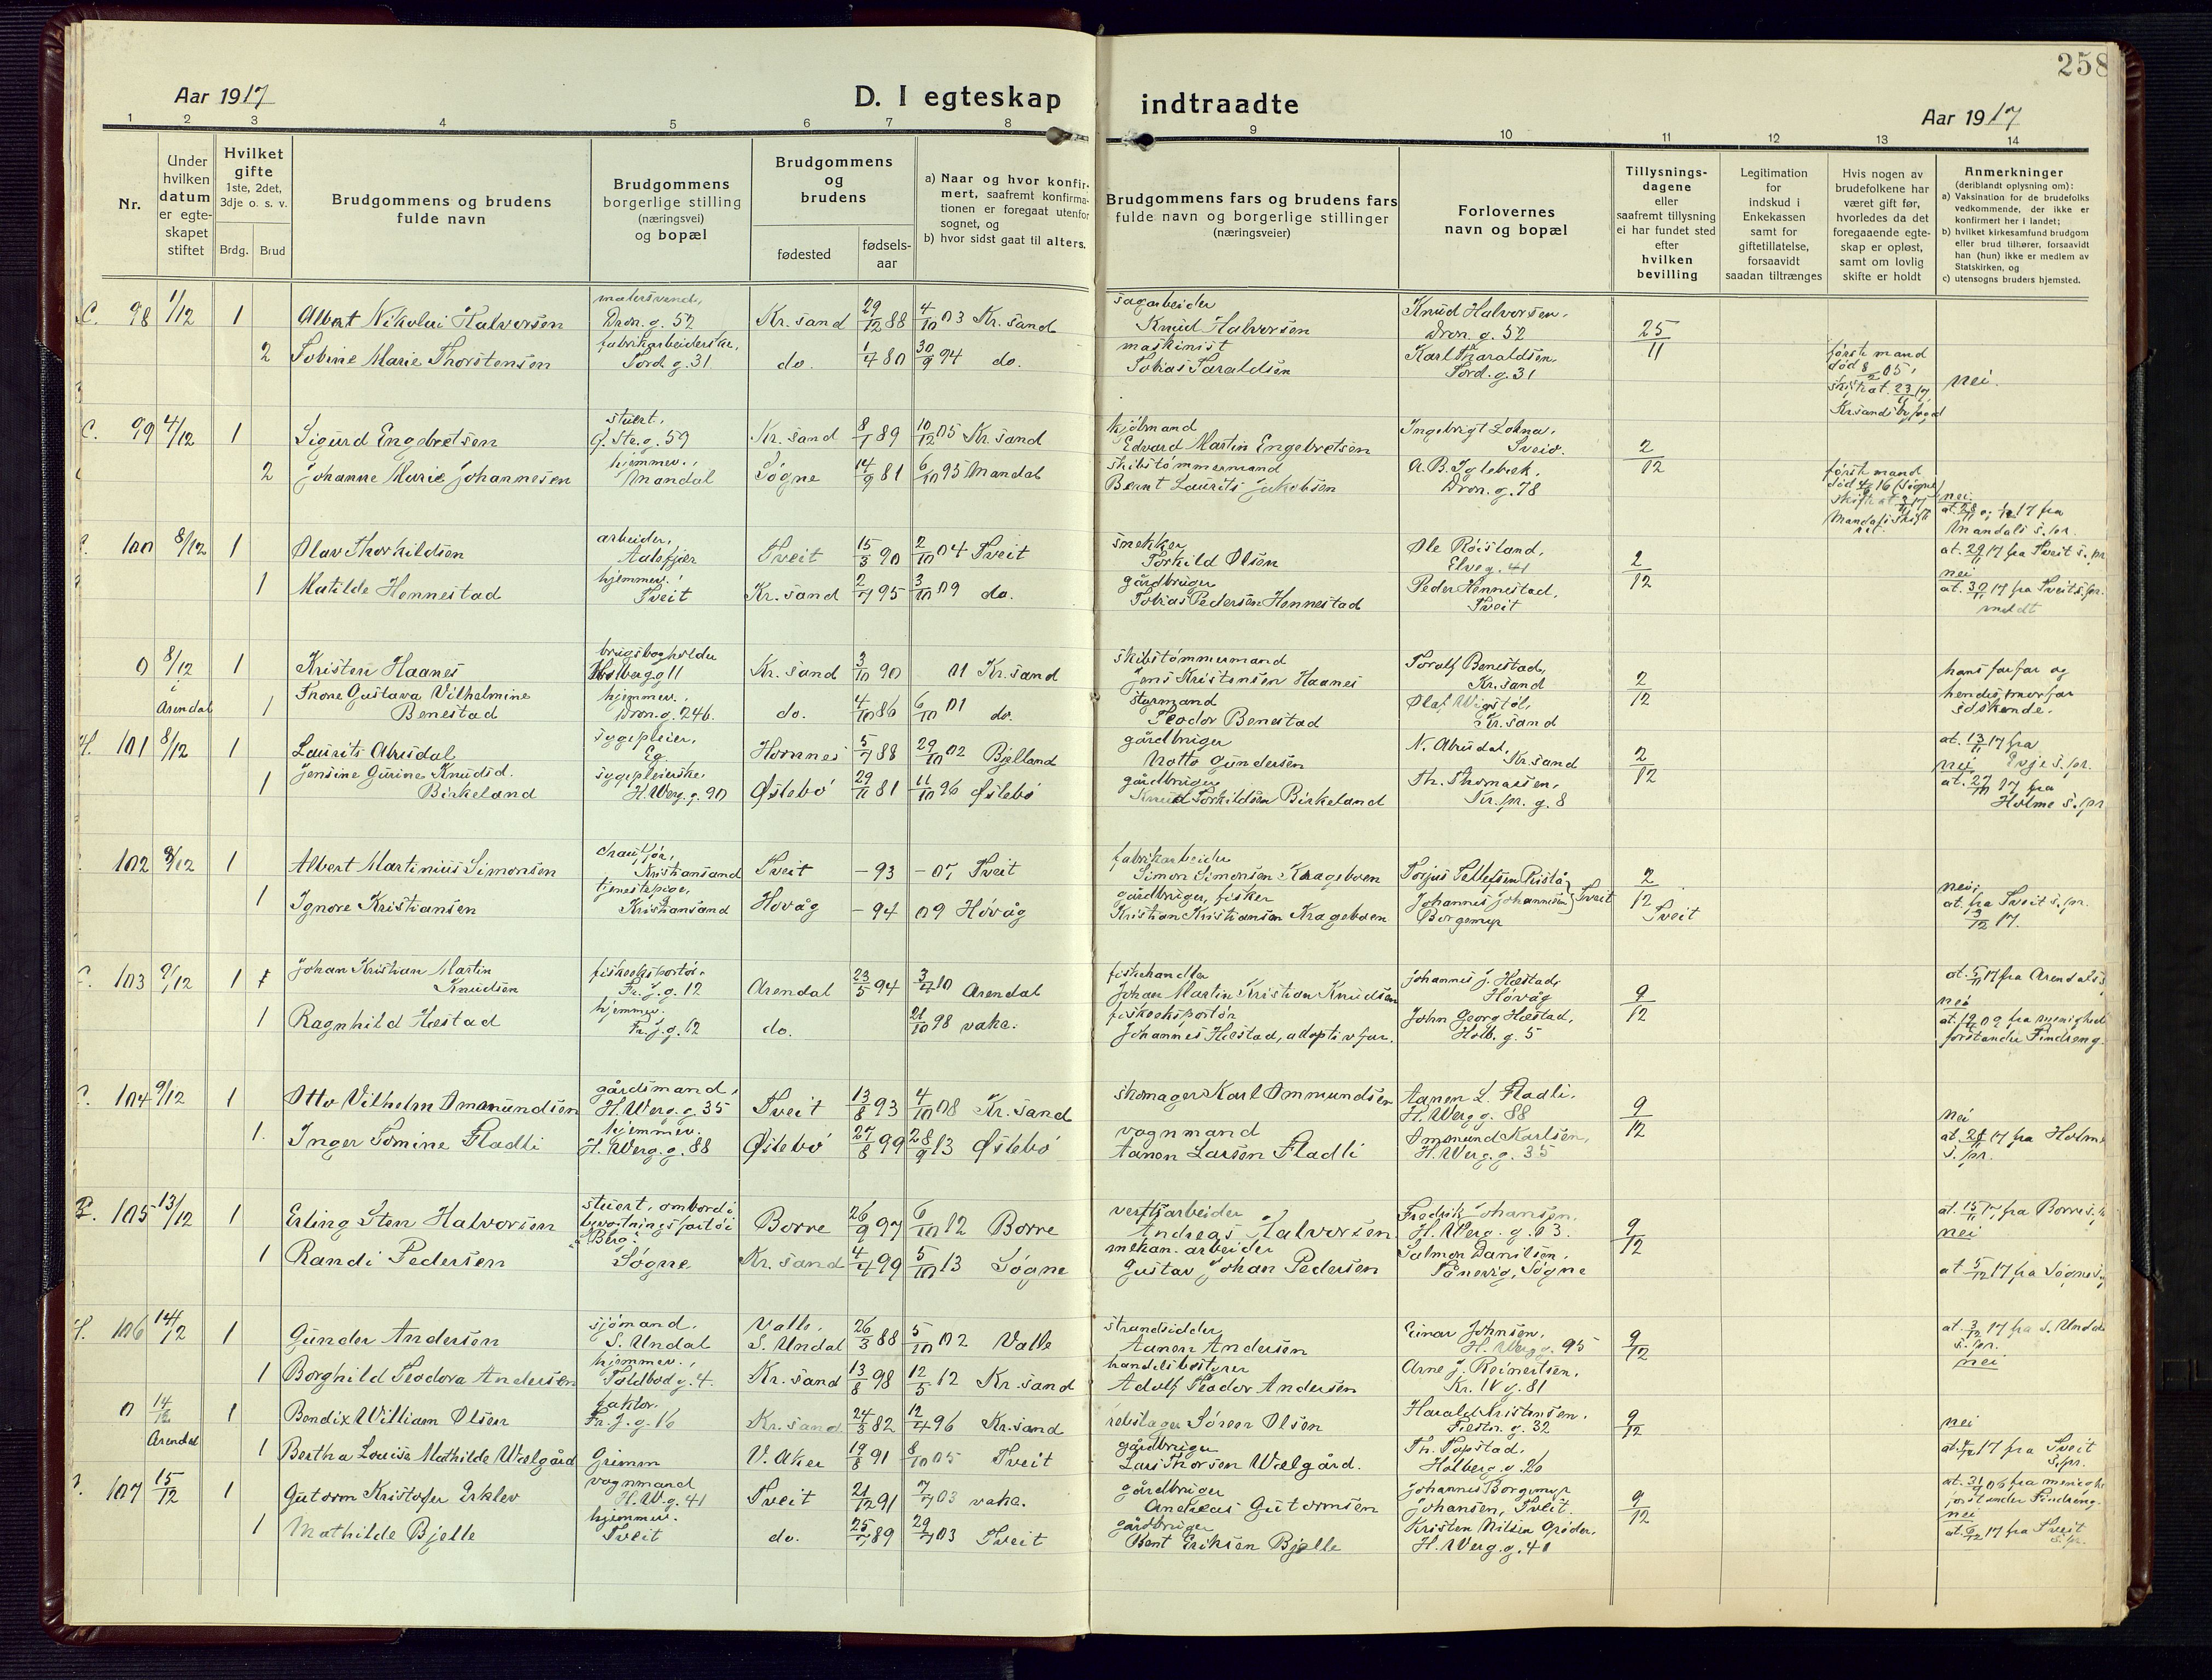 258
Aar 1917
D. I egteskap indtraadte
Aar 1917
1 2 3 4 5 6 7 8 9 10 11 12 13 14
Nr.
Under hvilken datum er egteskapet stiftet
Hvilket gifte 1ste, 2det, 3dje o. s. v.
Brdg. Brud
Brudgommens og brudens fulde navn
Brudgommens borgerlige stilling (næringsvei) og bopæl
Brudgommens og brudens
fødested
fødsels-aar
a) Naar og hvor konfirmert, saafremt konfirmationen er foregaat utenfor sognet, og
b) hvor sidst gaat til alters.
Brudgommens fars og brudens fars fulde navn og borgerlige stillinger (næringsveier)
Forlovernes navn og bopæl
Tillysningsdagene eller saafremt tillysning ei har fundet sted efter hvilken bevilling
Legitimation for indskud i Enkekassen samt for giftetillatelse, forsaavidt saadan tiltrænges
Hvis nogen av brudefolkene har været gift før, hvorledes da det foregaaende egteskap er opløst, samt om lovlig skifte er holdt
Anmerkninger (deriblandt oplysning om):
a) Vaksination for de brudefolks vedkommende, der ikke er konfirmert her i landet;
b) hvilket kirkesamfund brudgom eller brud tilhører, forsaavidt han (hun) ikke er medlem av Statskirken, og
c) utensogns bruders hjemsted.
C. 98 1/12 1 Albert Nikolai Halvorsen Dron.g. 52 Kr.sand 29/12 88 4/10 03 Kr.sand sagarbeider Knud Halvorsen Knud Halvorsen, Dron.g. 52 25/11
2 Tobine Marie Thorstensen fabrikarbeiderske, Tord.g. 31 do. 1/4 80 30/9 94 do. maskinist Tobias Taraldsen Karl Taraldsen, Tord.g. 31 første mand død 8/2 05, nei.
C. 99 4/12 1 Sigurd Engebretsen stuert, Ø. Str.g. 59 Kr.sand 8/1 89 10/12 05 Kr.sand Edvard Martin Engebretsen Ingebrigt Lohna, 2/12
2 Johanne Marie Johannesen hjemmev., Mandal Søgne 14/9 81 6/10 95 Mandal skibstømmermand Bernt Laurits Jakobsen A. B. Iglebæk, Dron.g. 78 første mand nei Mandals s.pr.
100 8/12 1 Olav Thorkildsen arbeider, Aalefjer Tveit 15/3 90 2/10 04 Tveit snekker Torkild Olsen Ole Røistand, Elveg. 41 2/12 at. 29/11 17 fra Tveit s.pr.
1 Matilde Hennestad hjemmev., Tveit Kr.sand 2/7 95 3/10 09 do. gårdbruger Tobias Pedersen Hennestad Peder Hennestad, Tveit nei at. 30/11 17 fra Tveit s.pr.
0 8/12 i Arendal 1 Kristen Haanes brugsbogholder Holberg.g 11 Kr.sand 3/10 90 01 Kr.sand skibstømmermand Jens Kristensen Haanes Toralf Benestad, Kr.sand 2/12 hans farfar og hendes morfar sødskende.
1 Gustava Vilhelmine Benestad hjemmev., Dron.g. 24b. do. 4/10 86 6/10 01 do. Teodor Benestad Olaf Vigstøl, Kr.sand
H. 101 8/12 1 Laurits Abusdal sygepleier, Eg. Hornnes 5/7 88 29/10 02 Bjelland gårdbruger Notto Gundersen N. Abusdal, Kr.sand 2/12 at. 13/11 17 fra Evje s.pr.
1 Jensine Gurine Knudsd. Birkeland sygepleierske, H. Werg.g. 90 Øslebø 29/11 81 11/10 96 Øslebø gårdbruger Knud Torkildsen Birkeland Th. Thomassen, Kr.pr.g. 8 nei at. 27/11 17 fra Holme s.pr.
102 8/12 1 Albert Martinius Simonsen chauffør, Kristiansand Tveit - 93 - 07 Tveit fabrikarbeider Simon Simonsen Krageboen Torjus Tellefsen Ristå 2/12 Tveit
1 Ignore Kristiansen tjenestepige, Kristiansand Hovåg - 94 09 Høvåg gårdbruger, fisker Kristian Kristiansen Krageboen Johannes Johannesen Borgemyr Tveit nei, at. fra Tveit s.pr. 3/12 17.
103 9/12 1 Johan Kristian Martin Knudsen fiskeeksportør, Fr.J.g. 12 Arendal 23/5 94 3/7 10 Arendal fiskehandler Johan Martin Kristian Knudsen Johannes J. Hæstad, Høvåg 9/12 at. 5/11 17 fra Arendals
1 Ragnhild Hæstad hjemmev. Fr.J.g. 12 do. 21/10 98 vaks. fiskeeksportør Johannes Hæstad, adoptivfar. John Georg Hæstad, Holb.g. 5 nei forstander Findreng.
104 9/12 1 Otto Vilhelm Ommundsen gårdsmand, H. Werg.g. 35 Tveit 13/8 93 4/10 08 Kr.sand skomager Karl Ommundsen Aanen L. Fladli, H. Werg.g. 88 9/12
1. Inger Tomine Fladli hjemmev. H. Werg.g. 88 Øslebø 27/8 99 28/9 13 Øslebø vognmand Aanon Larsen Fladli Ommund Karlsen, H. Werg.g. 35 nei at. 21/11 17 fra Holme s.pr.
105 13/12 1 Erling Sten Halvorsen stuert, ombord i bevogtningsfartøi "Berg". Borre 26/9 97 6/10 12 Borre verftsarbeider Andreas Halvorsen Fredrik Johansen, H. Werg.g. 63. 9/12 at 15/11 17 fra Borre s.
1 Randi Pedersen Søgne Kr.sand 4/4 99 5/10 13 Søgne mekan. arbeider Gustav Johan Pedersen Salmon Danilsen, Søgne nei at 5/12 17 fra Søgne s.
H. 106 14/12 1 Gunder Andersen sjømand, S. Undal Valle, S. Undal 26/3 88 5/10 02 Valle strandsidder Aanen Andersen Einar Johnsen, H. Werg.g. 95 9/12 at 3/12 17 fra S. Undal s.pr.
1 Borghild Teodora Andersen hjemmev., Toldbod g. 4. Kr.sand 13/8 98 12/5 12 Kr.sand handelsbestyrer Adolf Teodor Andersen Arne J. Reinertsen, Kr. IV g. 81 nei
0 14/12 Arendal 1 Bendix William Olsen faktor, Fr.J.g. 16 Kr.sand 24/3 82 12/4 96 Kr.sand rebslager Søren Olsen Harald Kristensen, Festn.g. 32 9/12 nei
1 Bertha Louise Mathilde Wælgård Grimm V. Aker 19/8 91 8/10 05 Tveit gårdbruger Lars Thorsen Wælgård. Th. Topstad, Holberg.g. 26 17 fra Tveit s.pr.
107 15/12 1 Gutorm Kristofer Erklev vognmand H.W.g. 41 Tveit 21/12 91 7/7 03 vaks. gårdbruger Andreas Gutormsen Johannes Borgemyr Johansen, Tveit. 9/12 forstander Findreng.
1 Mathilde Bjelle hjemmev. Tveit do. 25/7 89 29/7 03 Tveit gårdbruger Bent Eriksen Bjelle Kristen Nilsen H. Werg.g. 41 nei at. 6/12 17 fra Tveit s.pr.